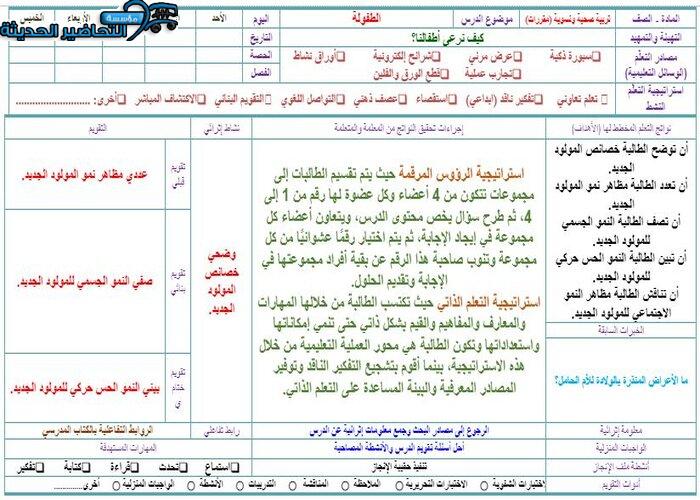 المادة ـ الصف
تربية صحية ونسوية (مقررات)
موضوع الدرس
الطفولة
اليوم
الأحد
الأربعاء
الخميس
مؤسسة
التحاضير الحديثة
التهيئة والتمهيد
كيف نرعى أطفالنا؟
التاريخ
مصادر التعلم
(الوسائل التعليمية)
□سبورة ذكية □عرض مرئي □شرائح إلكترونية □أوراق نشاط
□تجارب عملية □قطع الورق والفلين
الحصة
الفصل
استراتيجية التعلم
النشط
□ تعلم تعاوني □تفكير ناقد (ابداعي) □ استقصاء □عصف ذهني □التواصل اللغوي □ التقويم البنائي □ الاكتشاف المباشر □أخرى: ........................
نواتج التعلم المخطط لها (الأهداف)
إجراءات تحقيق النواتج من المعلمة والمتعلمة
نشاط إثرائي
التقويم
أن توضح الطالبة خصائص المولود
الجديد.
أن تعدد الطالبة مظاهر نمو المولود
الجديد.
أن تصف الطالبة النمو الجسمي
للمولود الجديد.
أن تبين الطالبة النمو الحس حركي
للمولود الجديد.
أن تناقش الطالبة مظاهر النمو
الاجتماعي للمولود الجديد.
الخبرات السابقة
ما الأعراض المنذرة بالولادة للأم الحامل؟
استراتيجية الرؤوس المرقمة حيث يتم تقسيم الطالبات إلى
مجموعات تتكون من 4 أعضاء وكل عضوة لها رقم من 1 إلى
4، ثم طرح سؤال يخص محتوى الدرس، ويتعاون أعضاء كل
مجموعة في إيجاد الإجابة، ثم يتم اختيار رقمًا عشوائيًا من كل
مجموعة وتنوب صاحبة هذا الرقم عن بقية أفراد مجموعتها في
الإجابة وتقديم الحلول.
استراتيجية التعلم الذاتي حيث تكتسب الطالبة من خلالها المهارات
والمعارف والمفاهيم والقيم بشكل ذاتي حتى تنمي إمكاناتها
واستعداداتها وتكون الطالبة هي محور العملية التعليمية من خلال
هذه الاستراتيجية، بينما أقوم بتشجيع التفكير الناقد وتوفير
المصادر المعرفية والبيئة المساعدة على التعلم الذاتي.
وضحي
خصائص
المولود
الجديد.
تقويم
قبلي
عددي مظاهر نمو المولود الجديد.
تقويم
بنائي
صفي النمو الجسمي للمولود الجديد.
تقويم
ختام
ي
بيني النمو الحس حركي للمولود الجديد.
معلومة إثرائية
الرجوع إلى مصادر البحث وجمع معلومات إثرائية عن الدرس
رابط تفاعلي
الروابط التفاعلية بالكتاب المدرسي
الواجبات المنزلية
أحل أسئلة تقويم الدرس والأنشطة المصاحبة
المهارات المستهدفة
أنشطة ملف الإنجاز
تنفيذ حقيبة الإنجاز
□استماع □تحدث □قراءة □كتابة □تفكير
أدوات التقويم
○اختبارات الشفوية ○الاختبارات التحريرية ○الملاحظة ○المناقشة ○التدريبات ○الأنشطة ○الواجبات المنزلية ○أخرى..............